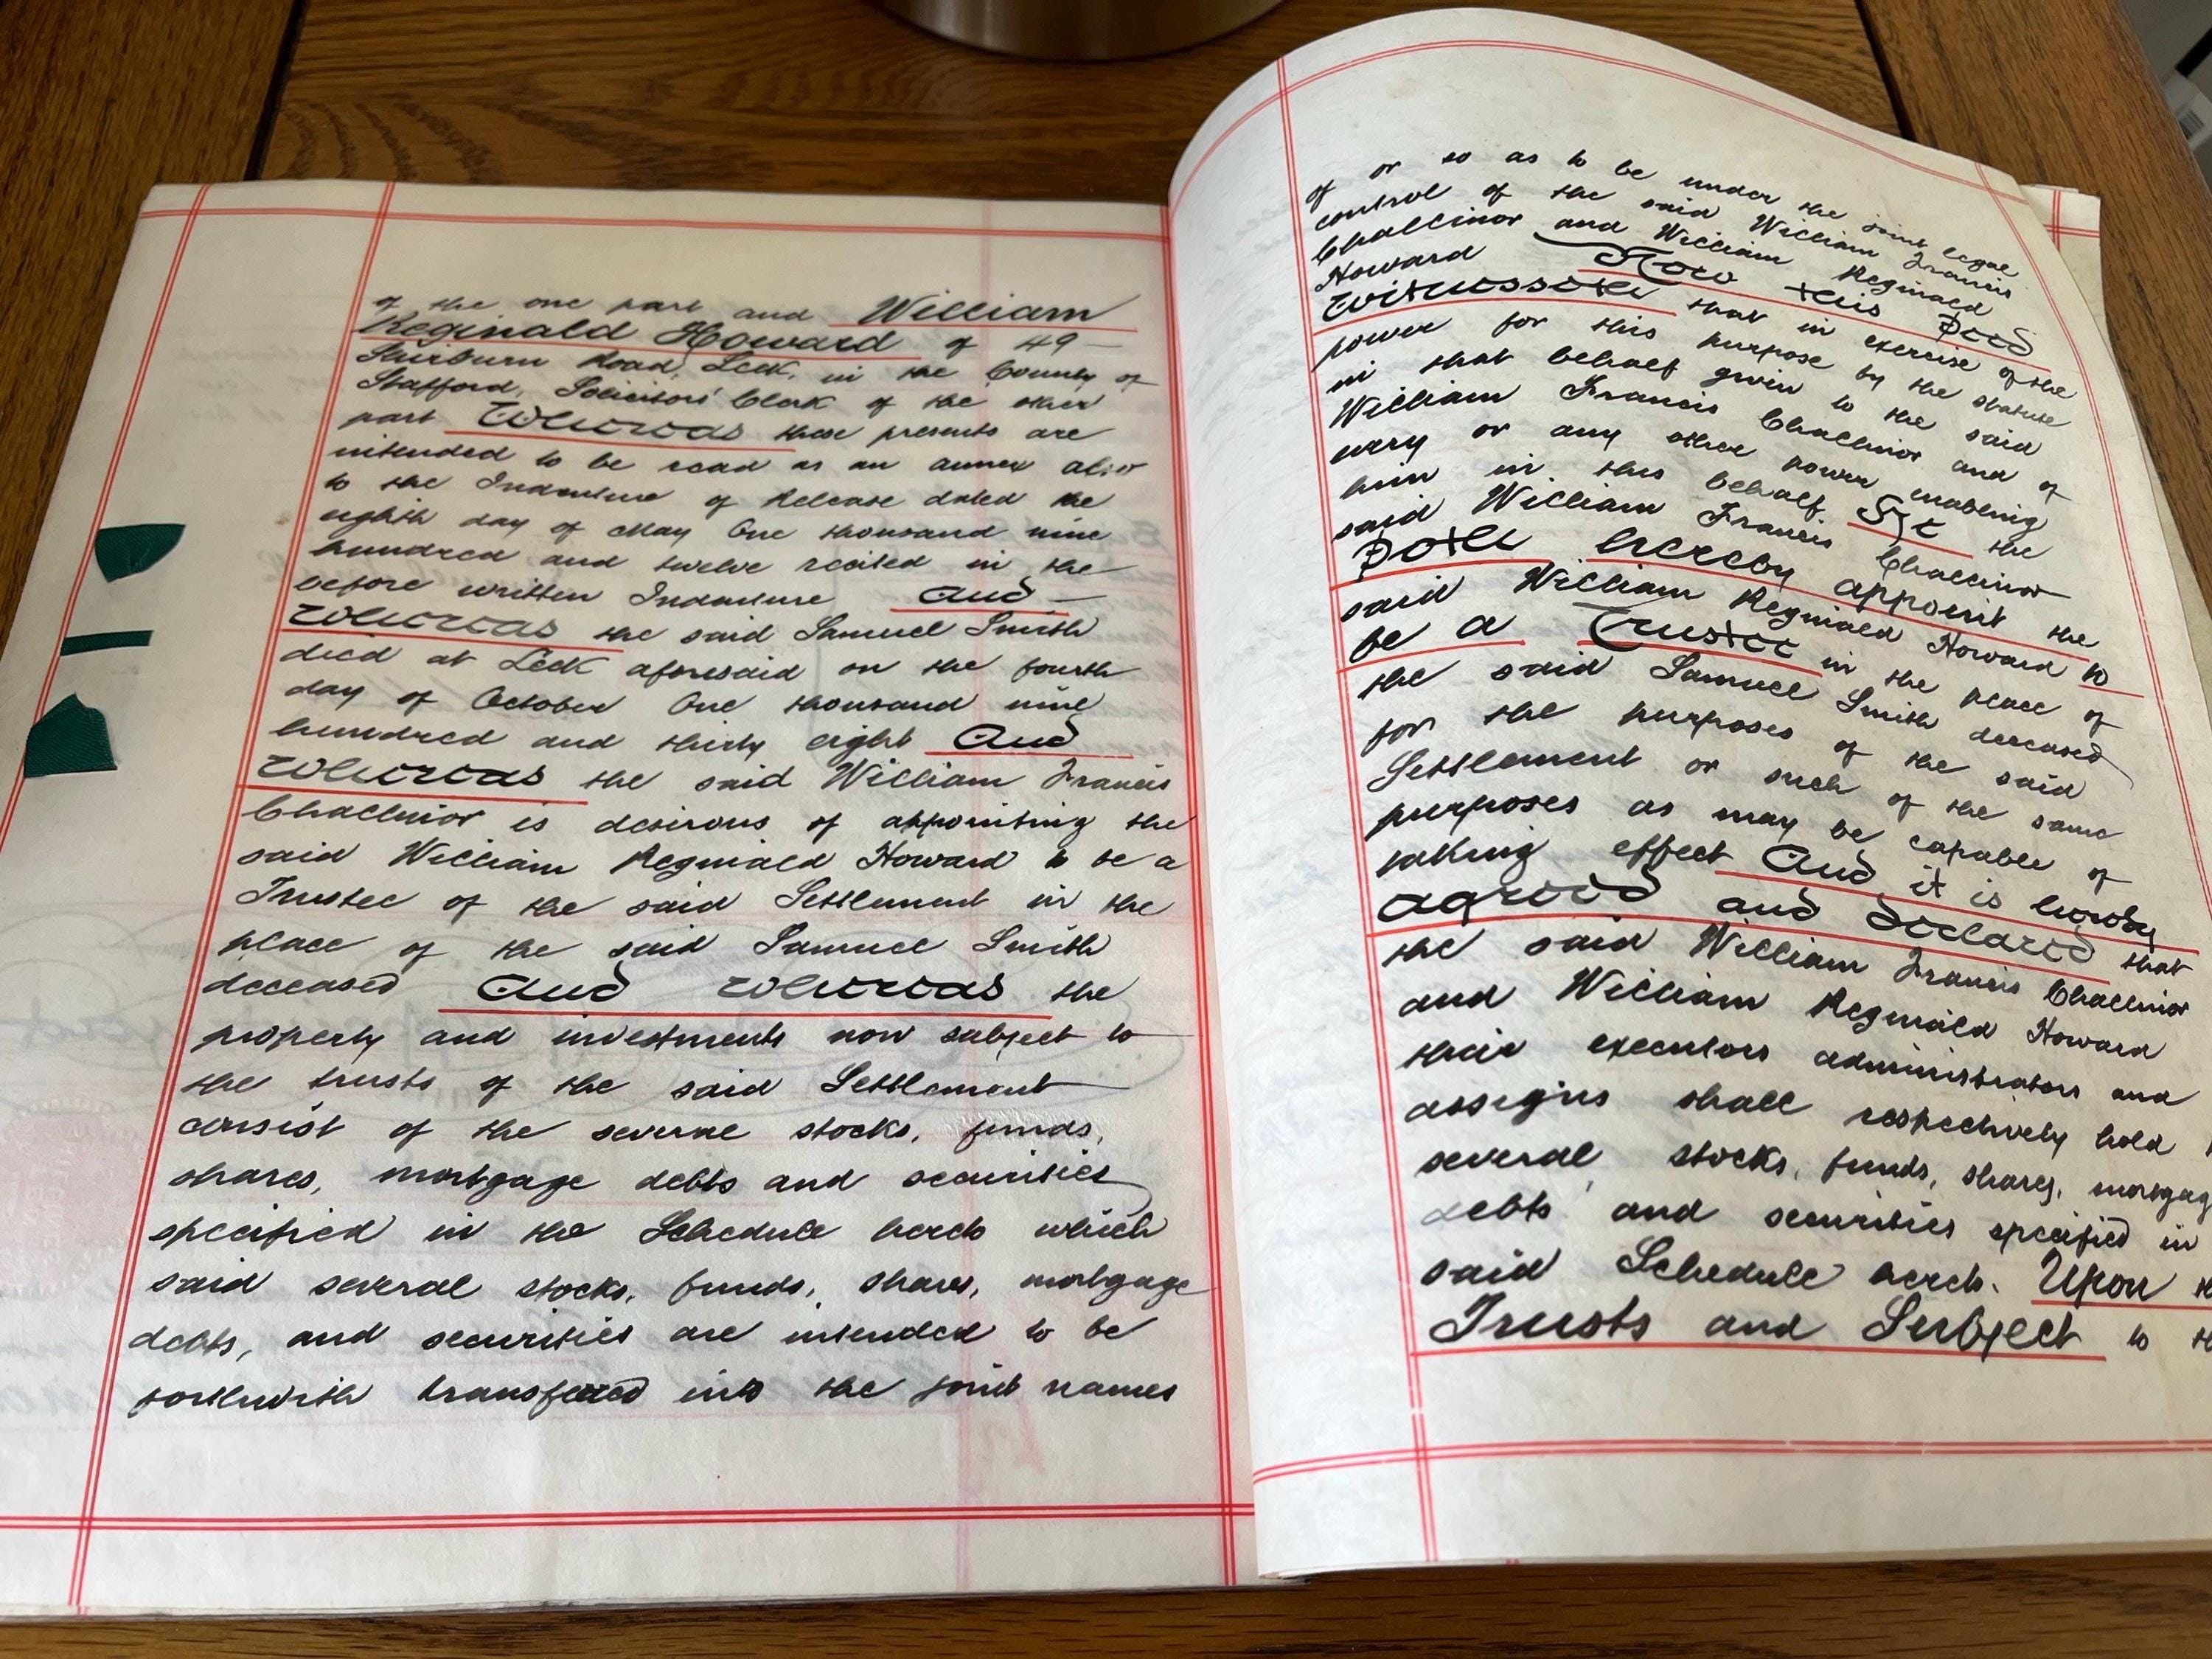 of the one part and William
Reginald Howard of 49
Road, Leek, in the County of
Stafford, Solicitors' Clerk of the other
part Whereas these presents are
intended to be read as an annex also
to the Indenture of Release dated the
eighth day of May One thousand nine
hundred and twelve recited in the
before written Indenture And
Whereas the said Samuel Smith
died at Leek aforesaid on the fourth
day of October One thousand nine
hundred and thirty eight And
Whereas the said William Francis
Challinor is desirous of appointing the
said William Reginald Howard to be a
Trustee of the said Settlement in the
place of the said Samuel Smith
deceased And Whereas the
property and investments now subject to
the trusts of the said Settlement
consist of the several stocks, funds,
shares, mortgage debts and securities
specified in the Schedule hereto which
said several stocks, funds, shares, mortgage
debts, and securities are intended to be
forthwith transferred into the joint names
of or so as to be under the joint legal
control of the said William Francis
Challinor and William Reginald
Howard Now this Deed
Witnesseth that in exercise of the
power for this purpose by the statute
in that behalf given to the said
William Francis Challinor and of
every or any other power enabling
him in this behalf He the
said William Francis Challinor
Doth hereby appoint the
said William Reginald Howard to
be a Trustee in the place of
the said Samuel Smith deceased
for the purposes of the said
Settlement or such of the same
purposes as may be capable of
taking effect And it is hereby
agreed and declared that
the said William Francis Challinor
and William Reginald Howard
their executors administrators and
assigns shall respectively hold
several stocks, funds, shares, mortgag
debts and securities specified in
said Schedule hereto. Upon
Trusts and Subject to